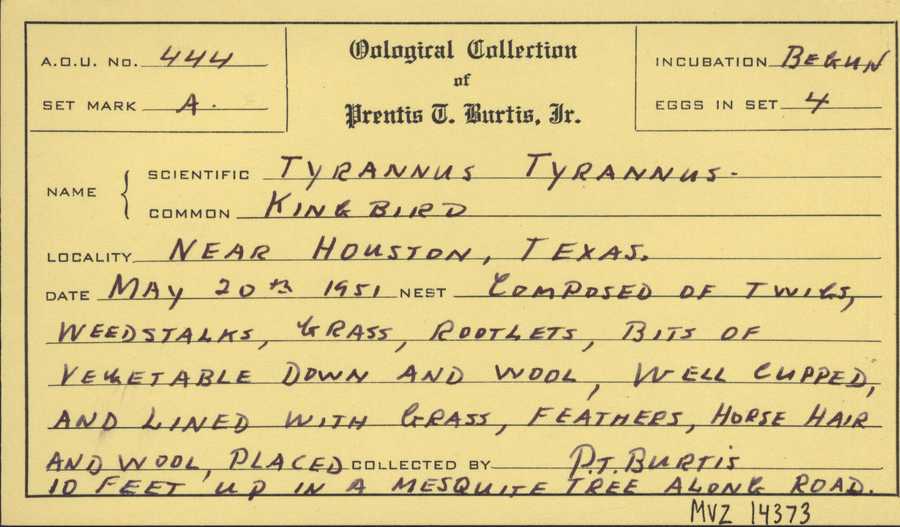 A.O.U. No. 444
SET MARK A.
Oological Collection
of
Prentis T. Burtis, Jr.
INCUBATION BEGUN
EGGS IN SET 4
NAME { SCIENTIFIC TYRANNUS TYRANNUS.
COMMON KINGBIRD
LOCALITY NEAR HOUSTON, TEXAS.
DATE MAY 20th 1951 NEST COMPOSED OF TWIGS,
WEEDSTALKS, GRASS, ROOTLETS, BITS OF
VEGETABLE DOWN AND WOOL, WELL CUPPED,
AND LINED WITH GRASS, FEATHERS, HORSE HAIR
AND WOOL, PLACED COLLECTED BY P.T. BURTIS
10 FEET UP IN A MESQUITE TREE ALONG ROAD.
MVZ 14373